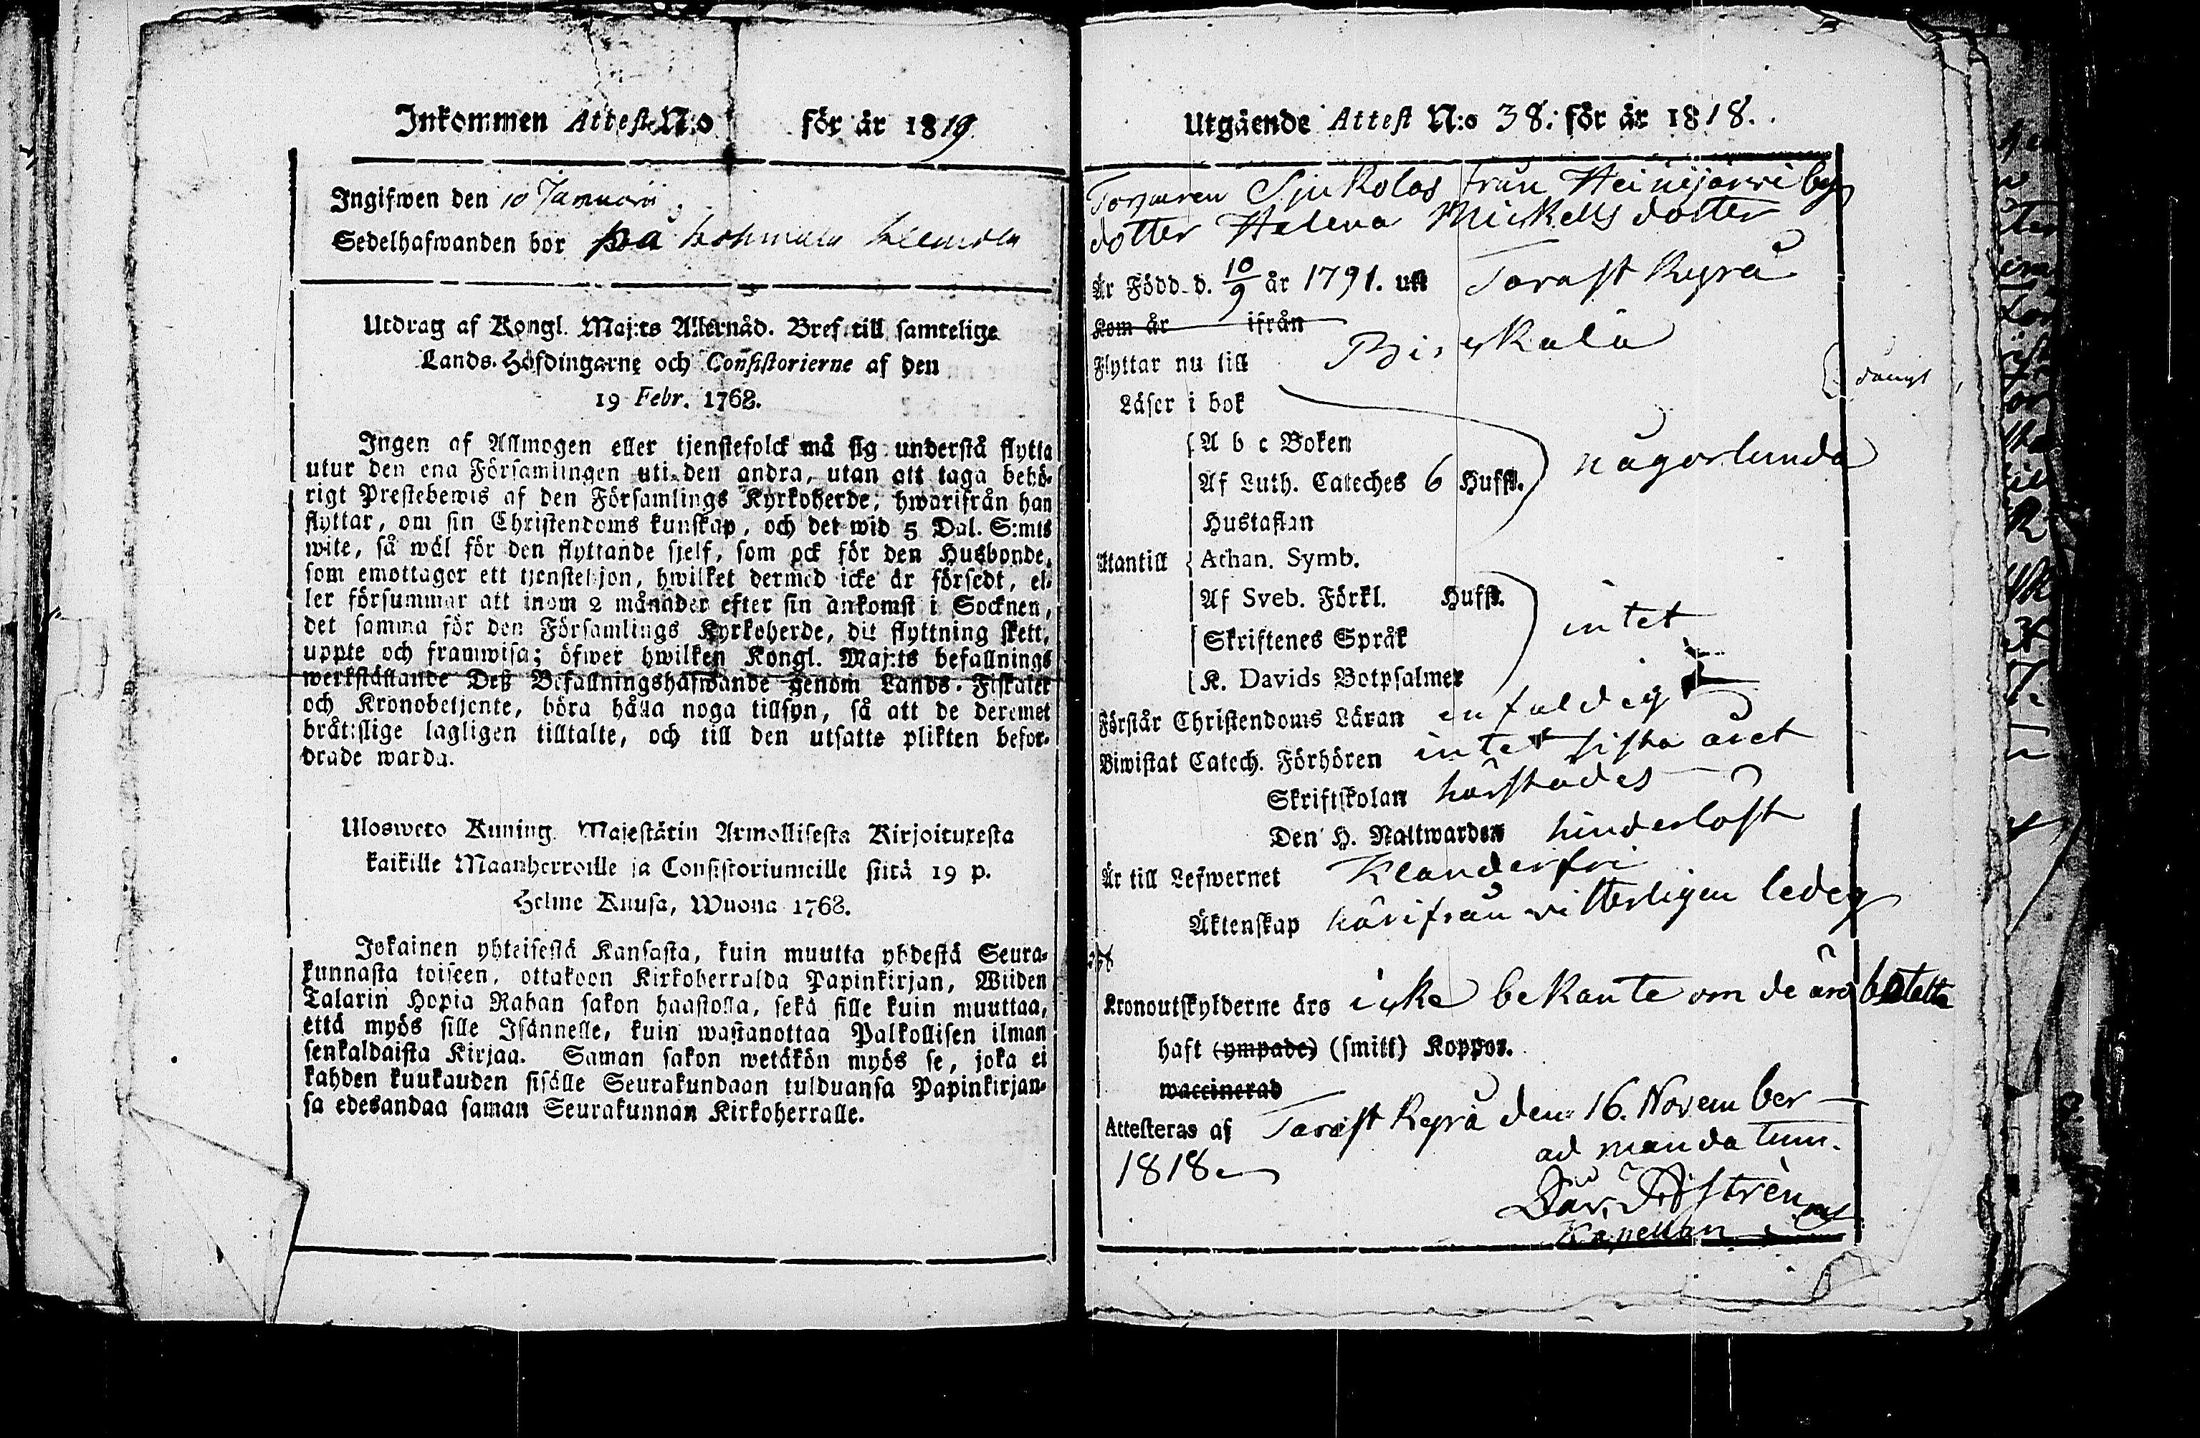 Inkommen Attest N:o för år 1819.
Ingifwen den 10 Januarii
Sedelhafwanden bor på
Utdrag af Kongl. Maj:ts Allernåd. Bref till samtelige
Lands-Höfdingarne och Consistorierne af den
19 Febr. 1768.
Ingen af Allmogen eller tjenstefolck må sig understå flytta
utur den ena Församlingen uti den andra, utan att taga behö-
rigt Prestebewis af den Församlings Kyrkoherde, hwarifrån han
flyttar, om sin Christendoms kunskap, och det wid 5 Dal. S:mts
wite, så wäl för den flyttande sjelf, som ock för den Husbonde,
som emottager ett tjenstehjon, hwilket dermed icke är försedt, el-
ler försummar att inom 2 månader efter sin ankomst i Socknen,
det samma för den Församlings Kyrkoherde, dit flyttning skett,
uppte och framwisa; öfwer hwilken Kongl. Maj:ts befallnings
werkställande Deß Befallningshafwande genom Lands-Fiskaler
och Kronobetjente, böra hålla noga tillsyn, så att de deremot
bråtslige lagligen tilltalte, och till den utsatte plikten befor-
drade warda.
Ulosweto Kuning. Majestätin Armollisesta Kirjoituxesta
kaikille Maanherroille ja Consistoriumeille siitä 19 p.
Helme Kuusa, Wuona 1768.
Jokainen yhteisestä Kansasta, kuin muutta yhdestä Seura-
kunnasta toiseen, ottakoon Kirkoherralda Papinkirjan, Wiiden
Talarin Hopia Rahan sakon haastolla, sekä sille kuin muuttaa,
että myös sille Isännelle, kuin wastanottaa Palkollisen ilman
senkaldaista Kirjaa. Saman sakon wetäkön myös se, joka ei
kahden kuukauden sisälle Seurakundaan tulduansa Papinkirjan-
sa edesandaa saman Seurakunnan Kirkoherralle.
Utgående Attest N:o 38. för år 1818.
Torparen Sjukolas från Heinijärwi by
dotter Helena Mickells dotter
Är Född d. 10/9 år 1791. uti Tarast Kyrå
Kom år ifrån
Flyttar nu till Birckala
Läser i bok
A b c Boken
Af Luth. Cateches 6 Hufst. någorlunda
Hustaflan
Utantill Athan. Symb.
Af Sveb. Förkl. Hufst.
Skriftenes Språk intet
K. Davids Botpsalmer
Förstår Christendoms Läran enfaldig
Biwistat Catech. Förhören intet sista året
Skriftskolan härstädes
Den H. Nattwarden hinderlöst
Är till Lefwernet Klanderfri
Äktenskap härifrån vitterligen ledig
Kronoutskylderne äro icke bekante om de äro betalte
haft (ympade) (smitt) Koppor.
waccinerad
Attesteras af Tarast Kyrå den 16. November
1818. ad mandatum.
Kapellan